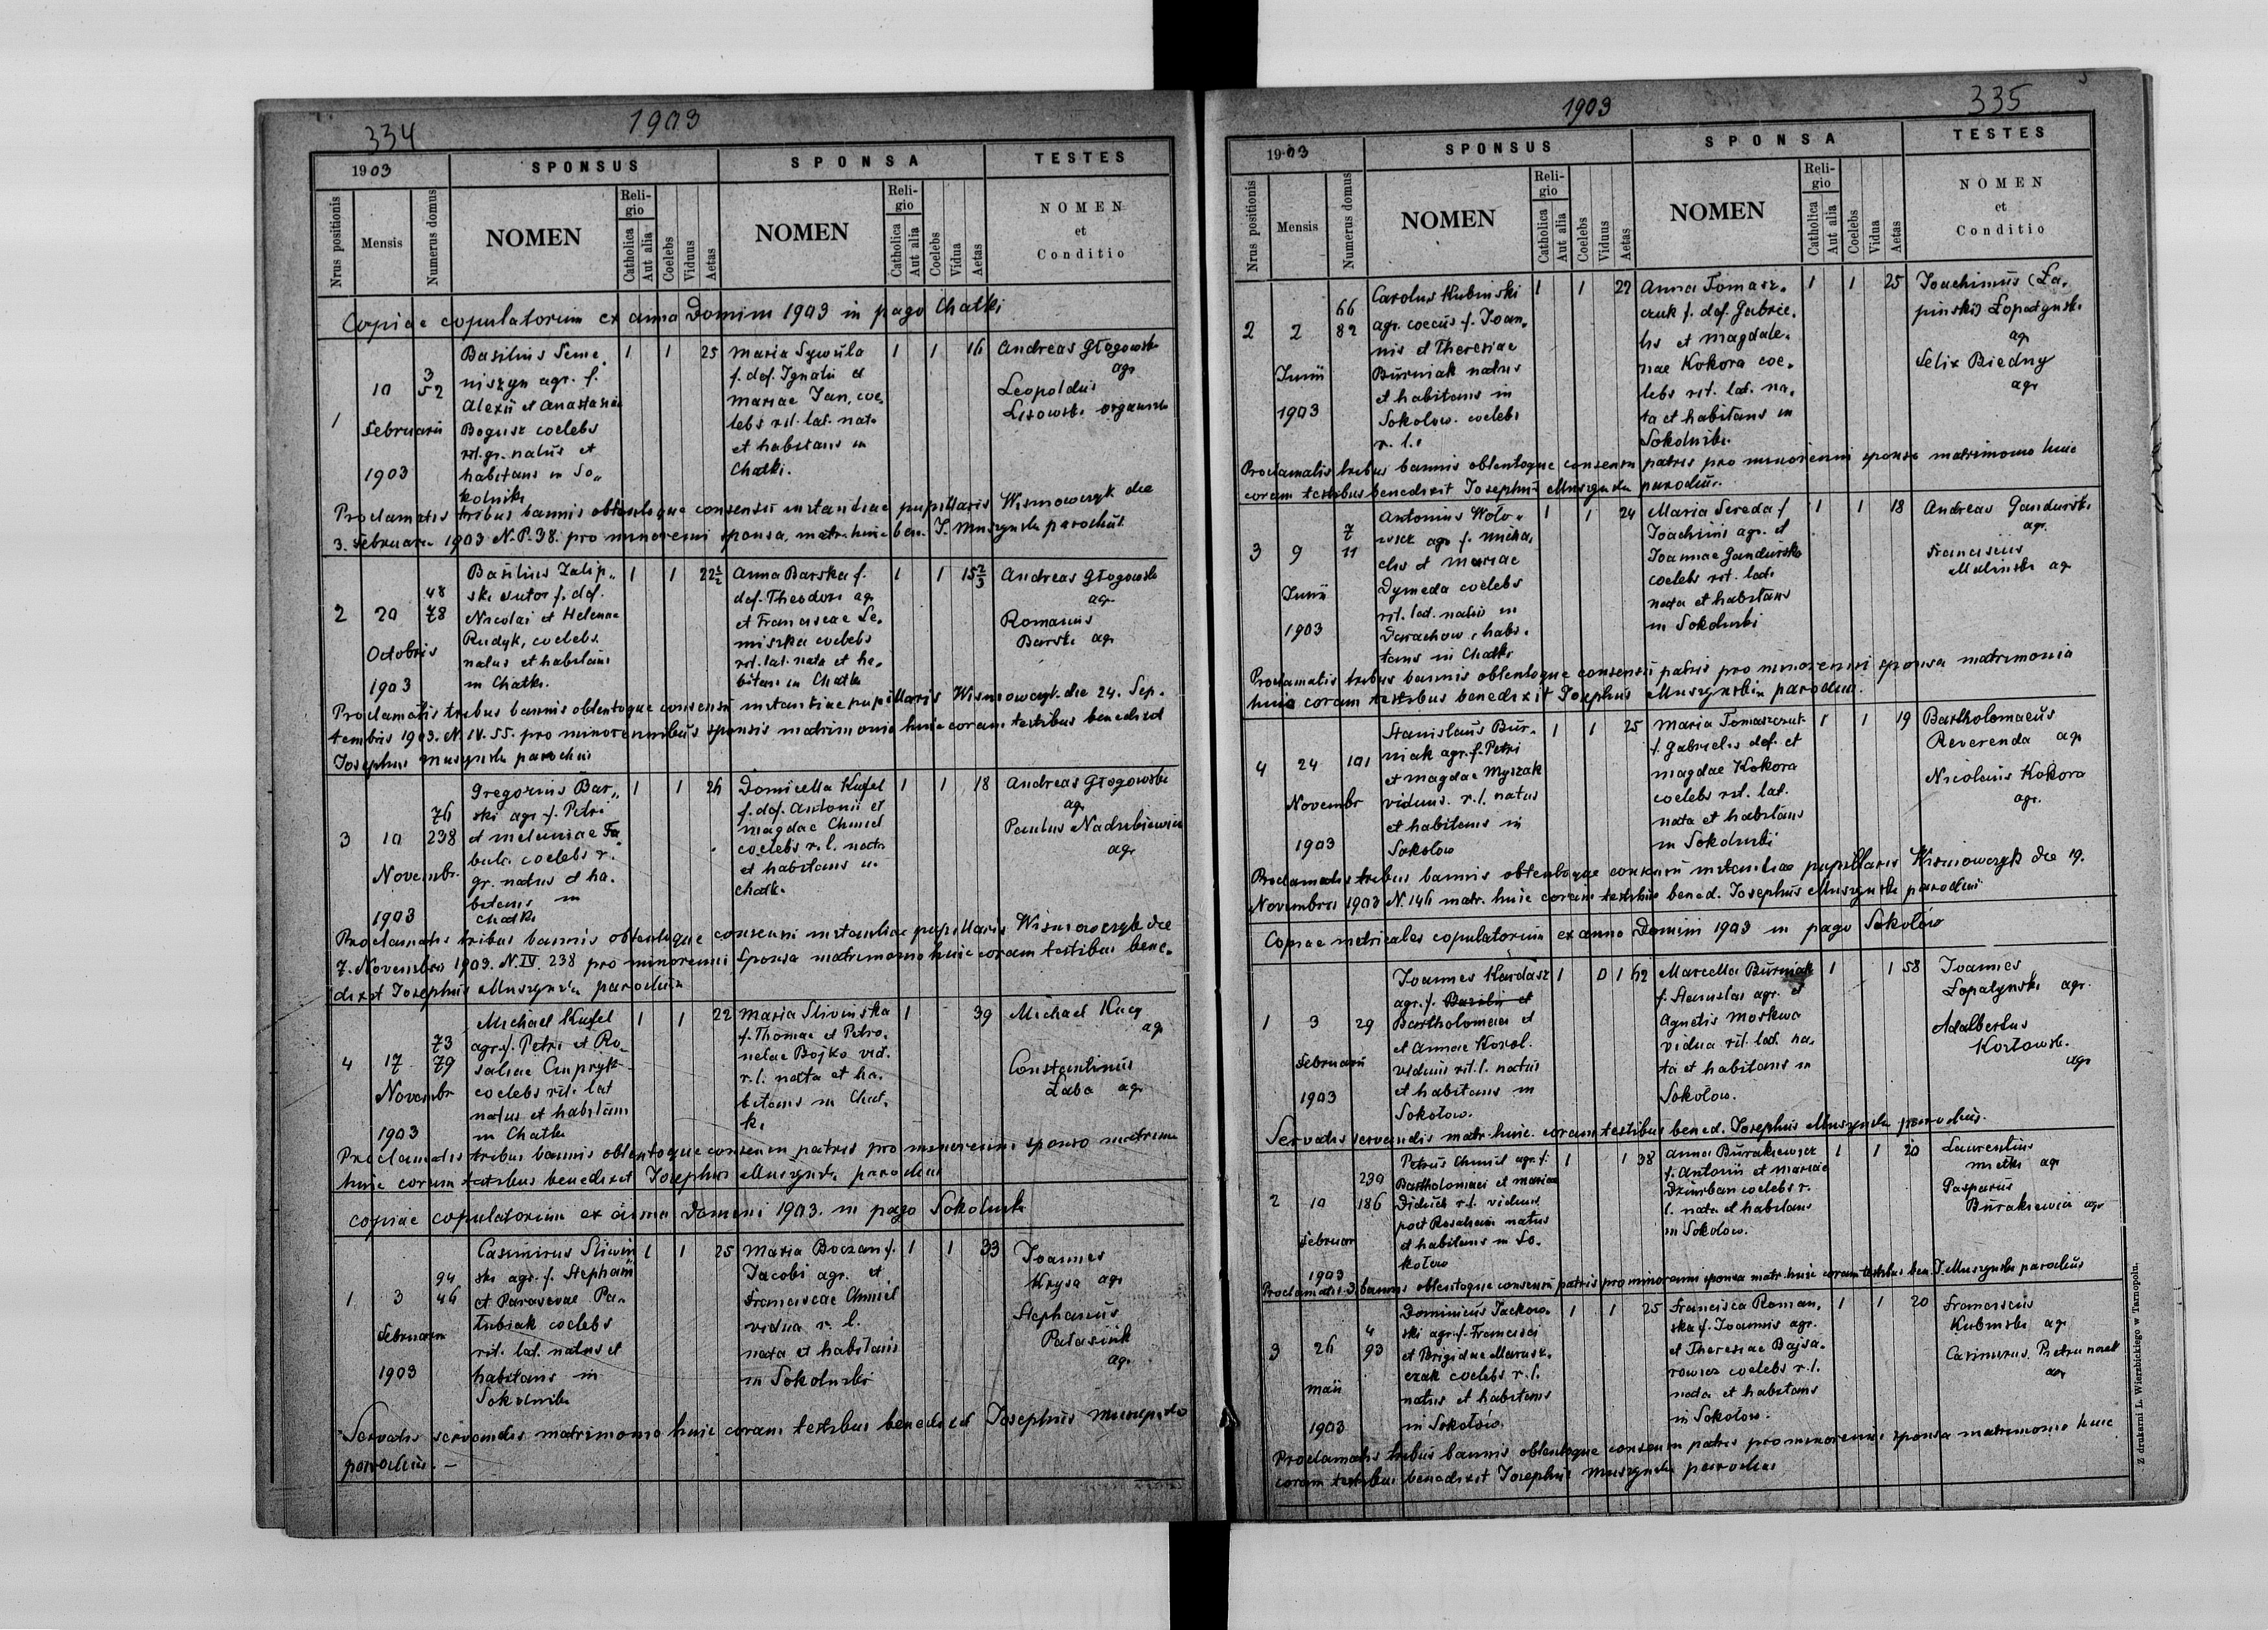 334
1903
1903
SPONSUS
SPONSA
TESTES
Nrus positionis
Mensis
Numerus domus
NOMEN
Reli-
gio
Catholica
Aut alia
Coelebs
Viduus
Aetas
NOMEN
Reli-
gio
Catholica
Aut alia
Coelebs
Vidua
Aetas
NOMEN
et
Conditio
Copiae copulatorum ex anno Domini 1903 in pago Chatki
1
10
Februarii
1903
3
52
Basilius Seme
niszyn agr. f.
Alexii et Anastasiae
Bogusz coelebs
rit. gr. natus et
habitans in So„
kolniki
1 1 25
Maria Sywula
f. def. Ignatii et
Mariae Jan, coe
lebs rit. lat. nata
et habitans in
Chatki.
1 1 16
Andreas Głogowski
agr
Leopoldus
Lisowski organista
Proclamatis tribus bannis obtentoque consensu instantiae pupillaris Wisniowczyk die
3. Februarii 1903 N. P. 38. pro minorenni sponsa, matr. huic ben. J. Muszynski parochus
2
20
Octobris
1903
48
78
Basilius Zalip„
ski sutor f. def.
Nicolai et Helenae
Rudyk, coelebs
natus et habitans
in Chatki.
1 1 22½
Anna Barska f.
def. Theodori agr
et Franciscae Se.
miszka coelebs
rit. lat. nata et ha.
bitans in Chatki
1 1 15⅔
Andreas Głogowski
agr
Romanus
Barski agr
Proclamatis tribus bannis obtentoque consensu instantiae pupillaris Wisniowczyk die 24. Sep.
tembris 1903. N. IV. 55. pro minorennibus sponsis matrimonio huic coram testibus benedixit
Josephus Muszynski parochus
3
10
Novembr.
1903
76
238
Gregorius Bar„
ski agr. f. Petri
et Melaniae
coelebs r.
gr. natus et ha.
bitans in
Chatki
1 1 26
Domicella Kufel
f. def. Antonii et
Magdae Chmiel
coelebs r. l. nata
et habitans in
Chatki.
1 1 18
Andreas Głogowski
agr
Paulus Nadubiewicz
agr
Proclamatis tribus bannis obtentoque consensu instantiae pupillaris Wisniowczyk die
7. Novembris 1903. N. IV. 238 pro minorenni sponsa matrimonio huic coram testibus bene.
dixit Josephus Muszynski parochus
4
17
Novembr
1903
73
79
Michael Kufel
agr. f. Petri et Ro.
saliae Cupryk
coelebs rit. lat
natus et habitans
in Chatki
1 1 22
Maria Sliwinska
f. Thomae et Petro.
nelae Bojko vid.
r. l. nata et ha.
bitans in Chat.
ki
1 39
Michael Kucy
agr
Constantinus
Łaba agr
Proclamatis tribus bannis obtentoque consensu patris pro minorenni sponso matrimo
huic coram testibus benedixit Josephus Muszynski parochus
Copiae copulatorum ex anno Domini 1903. in pago Sokolniki
1
3
Februarii
1903
94
46
Casimirus Sliwin
ski agr. f. Stephani
et Parasevae Pa.
tubiak coelebs
rit. lat. natus et
habitans in
Sokolniki
1 1 25
Maria Boczan f.
Jacobi agr. et
Franciscae Chmiel
vidua r. l.
nata et habitans
in Sokolniki
1 1 33
Joannes
Krysa agr
Stephanus
Patasiuk
agr.
Servatis servandis matrimonio huic coram testibus benedixit Josephus Muszynski
parochus. –
1903
335
1903
SPONSUS
SPONSA
TESTES
Nrus positionis
Mensis
Numerus domus
NOMEN
Reli-
gio
Catholica
Aut alia
Coelebs
Viduus
Aetas
NOMEN
Reli-
gio
Catholica
Aut alia
Coelebs
Vidua
Aetas
NOMEN
et
Conditio
2
2
Junii
1903
66
82
Carolus Kubinski
agr. coecus f. Joan.
nis et Theresiae
Burniak natus
et habitans in
Sokolow. coelebs
r. l.
1 1 22
Anna Tomasz.
czuk f. def. Gabrie.
lis et Magdale.
nae Kokora coe.
lebs rit. lat. na.
ta et habitans in
Sokolniki.
1 1 25
Joachimus (Ła.
pinski) Łopatynski
agr
Felix Biedny
agr
Proclamatis tribus bannis obtentoque consensu patris pro minorenni sponso matrimonio huic
coram testibus benedixit Josephus Muszynski parochus.
3
9
Junii
1903
7
11
Antonius Woło.
wicz agr f. Micha.
elis et Mariae
Dymeda coelebs
rit. lat. natus in
Darachow. habi.
tans in Chatki
1 1 24
Maria Sereda f
Joachimi agr. et
Joannae Gandurska
coelebs rit. lat.
nata et habitans
in Sokolniki
1 1 18
Andreas Gandurski
agr.
Franciscus
Malinski agr
Proclamatis tribus bannis obtentoque consensu patris pro minorenni sponsa matrimonio
huic coram testibus benedixit Josephus Muszynski parochus.
4
24
Novembr
1903
101
Stanislaus Bur.
niak agr. f. Petri
et Magdae Myszak
viduus. r. l. natus
et habitans in
Sokolow
1 1 25
Maria Tomaszczuk
f. Gabrielis def. et
Magdae Kokora
coelebs rit. lat.
nata et habitans
in Sokolniki
1 1 19
Bartholomaeus
Reverenda agr
Nicolaus Kokora
agr.
Proclamatis tribus bannis obtentoque consensu instantiae pupillaris Wisniowczyk die 19.
Novembris 1903 N. 146 matr. huic coram testibus bened. Josephus Muszynski parochus
Copiae metricales copulatorum ex anno Domini 1903 in pago Sokołów
1
3
Februarii
1903
29
Joannes Kardasz
agr. f. Basilii et
Bartholomaei et
et Annae Korol.
viduus rit. l. natus
et habitans in
Sokołow.
1 0 1 62
Marcella Burniak
f. Stanislai agr. et
Agnetis Moskwa
vidua rit. lat. na.
ta et habitans in
Sokołow.
1 1 58
Joannes
Lopatynski agr.
Adalbertus
Kozłowski.
agr
Servatis servandis matr. huic. coram testibus bened. Josephus Muszynski parochus.
2
10
Februar
1903
239
186
Petrus Chmiel agr. f.
Bartholomaei et Mariae
Diduch r. l. viduus
post Rosaliam natus
et habitans in So.
kołow
1 1 38
Anna Burakiewicz
f. Antonii et Mariae
Dziurban coelebs r.
l. nata et habitans
in Sokolow.
1 1 20
Laurentius
Mietki agr
Gasparus
Burakiewicz agr
Proclamatis 3 bannis obtentoque consensu patris pro minorenni sponsa matr. huic coram testibus ben. J. Muszynski parochus
3
26
Maii
1903
4
93
Dominicus Jackow.
ski agr. f. Francisci
et Brigidae Marusz.
czak coelebs r. l.
natus et habitans
in Sokołow.
1 1 25
Francisca Roman.
ska f. Joannis agr.
et Theresiae Bajsa.
rowicz coelebs r. l.
nata et habitans
in Sokołow.
1 1 20
Franciscus
Kubinski agr
Casimirus
agr
Proclamatis tribus bannis obtentoque consensu patris pro minorenni sponsa matrimonio huic
coram testibus benedixit Josephus Muszynski parochus
Z drukarni L. Wierzbickiego w Tarnopolu.